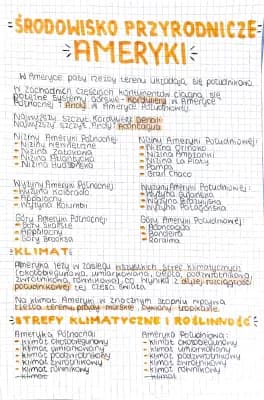 ŚRODOWISKO PRZYRODNICZE
AMERYKI
W Ameryce pasy rzeźby terenu układają się południkowo.
W zachodnich częściach kontynentów ciągną się
potężne systemy górskie - Kordyliery w Ameryce
Północnej i Andy w Ameryce Południowej.
Najwyższy szczyt Kordylierów Denali
Najwyższy szczyt Andy Aconcagua
Niziny Ameryki Północnej:
- Niziny Wewnętrzne
- Nizina Zatokowa
- Nizina Atlantycka
- Nizina Hudsońska
Niziny Ameryki Południowej:
- Nizina Orinoko
- Nizina Amazonki
- Nizina La Platy
- Pampa
- Gran Chaco
Wyżyny Ameryki Północnej:
- Wyżyna Kolorado
- Appalachy
- Wyżyna Kolumbii
Wyżyny Ameryki Południowej:
- Wyżyna Gujańska
- Wyżyna Brazylijska
- Wyżyna Patagońska
Góry Ameryki Północnej:
- Góry Skaliste
- Appalachy
- Góry Brooksa
Góry Ameryki Południowej:
- Aconcagua
- Bandeira
- Roraima
KLIMAT:
Ameryka leży w zasięgu wszystkich stref klimatycznych
(okołobiegunowa, umiarkowana, ciepła, podzwrotnikowa,
zwrotnikowa, równikowa), co wynika z dużej rozciągłości
południkowej tej części świata.
Na klimat Ameryki w znacznym stopniu wpływa
rzeźba terenu, prądy morskie, cyklony tropikalne.
STREFY KLIMATYCZNE I ROŚLINNOŚĆ
Ameryka Północna:
- klimat okołobiegunowy
- klimat umiarkowany
- klimat podzwrotnikowy
- klimat zwrotnikowy
- klimat równikowy
- klimat
Ameryka Południowa:
- klimat okołobiegunowy
- klimat umiarkowany
- klimat podzwrotnikowy
- klimat zwrotnikowy
- klimat równikowy
- klimat